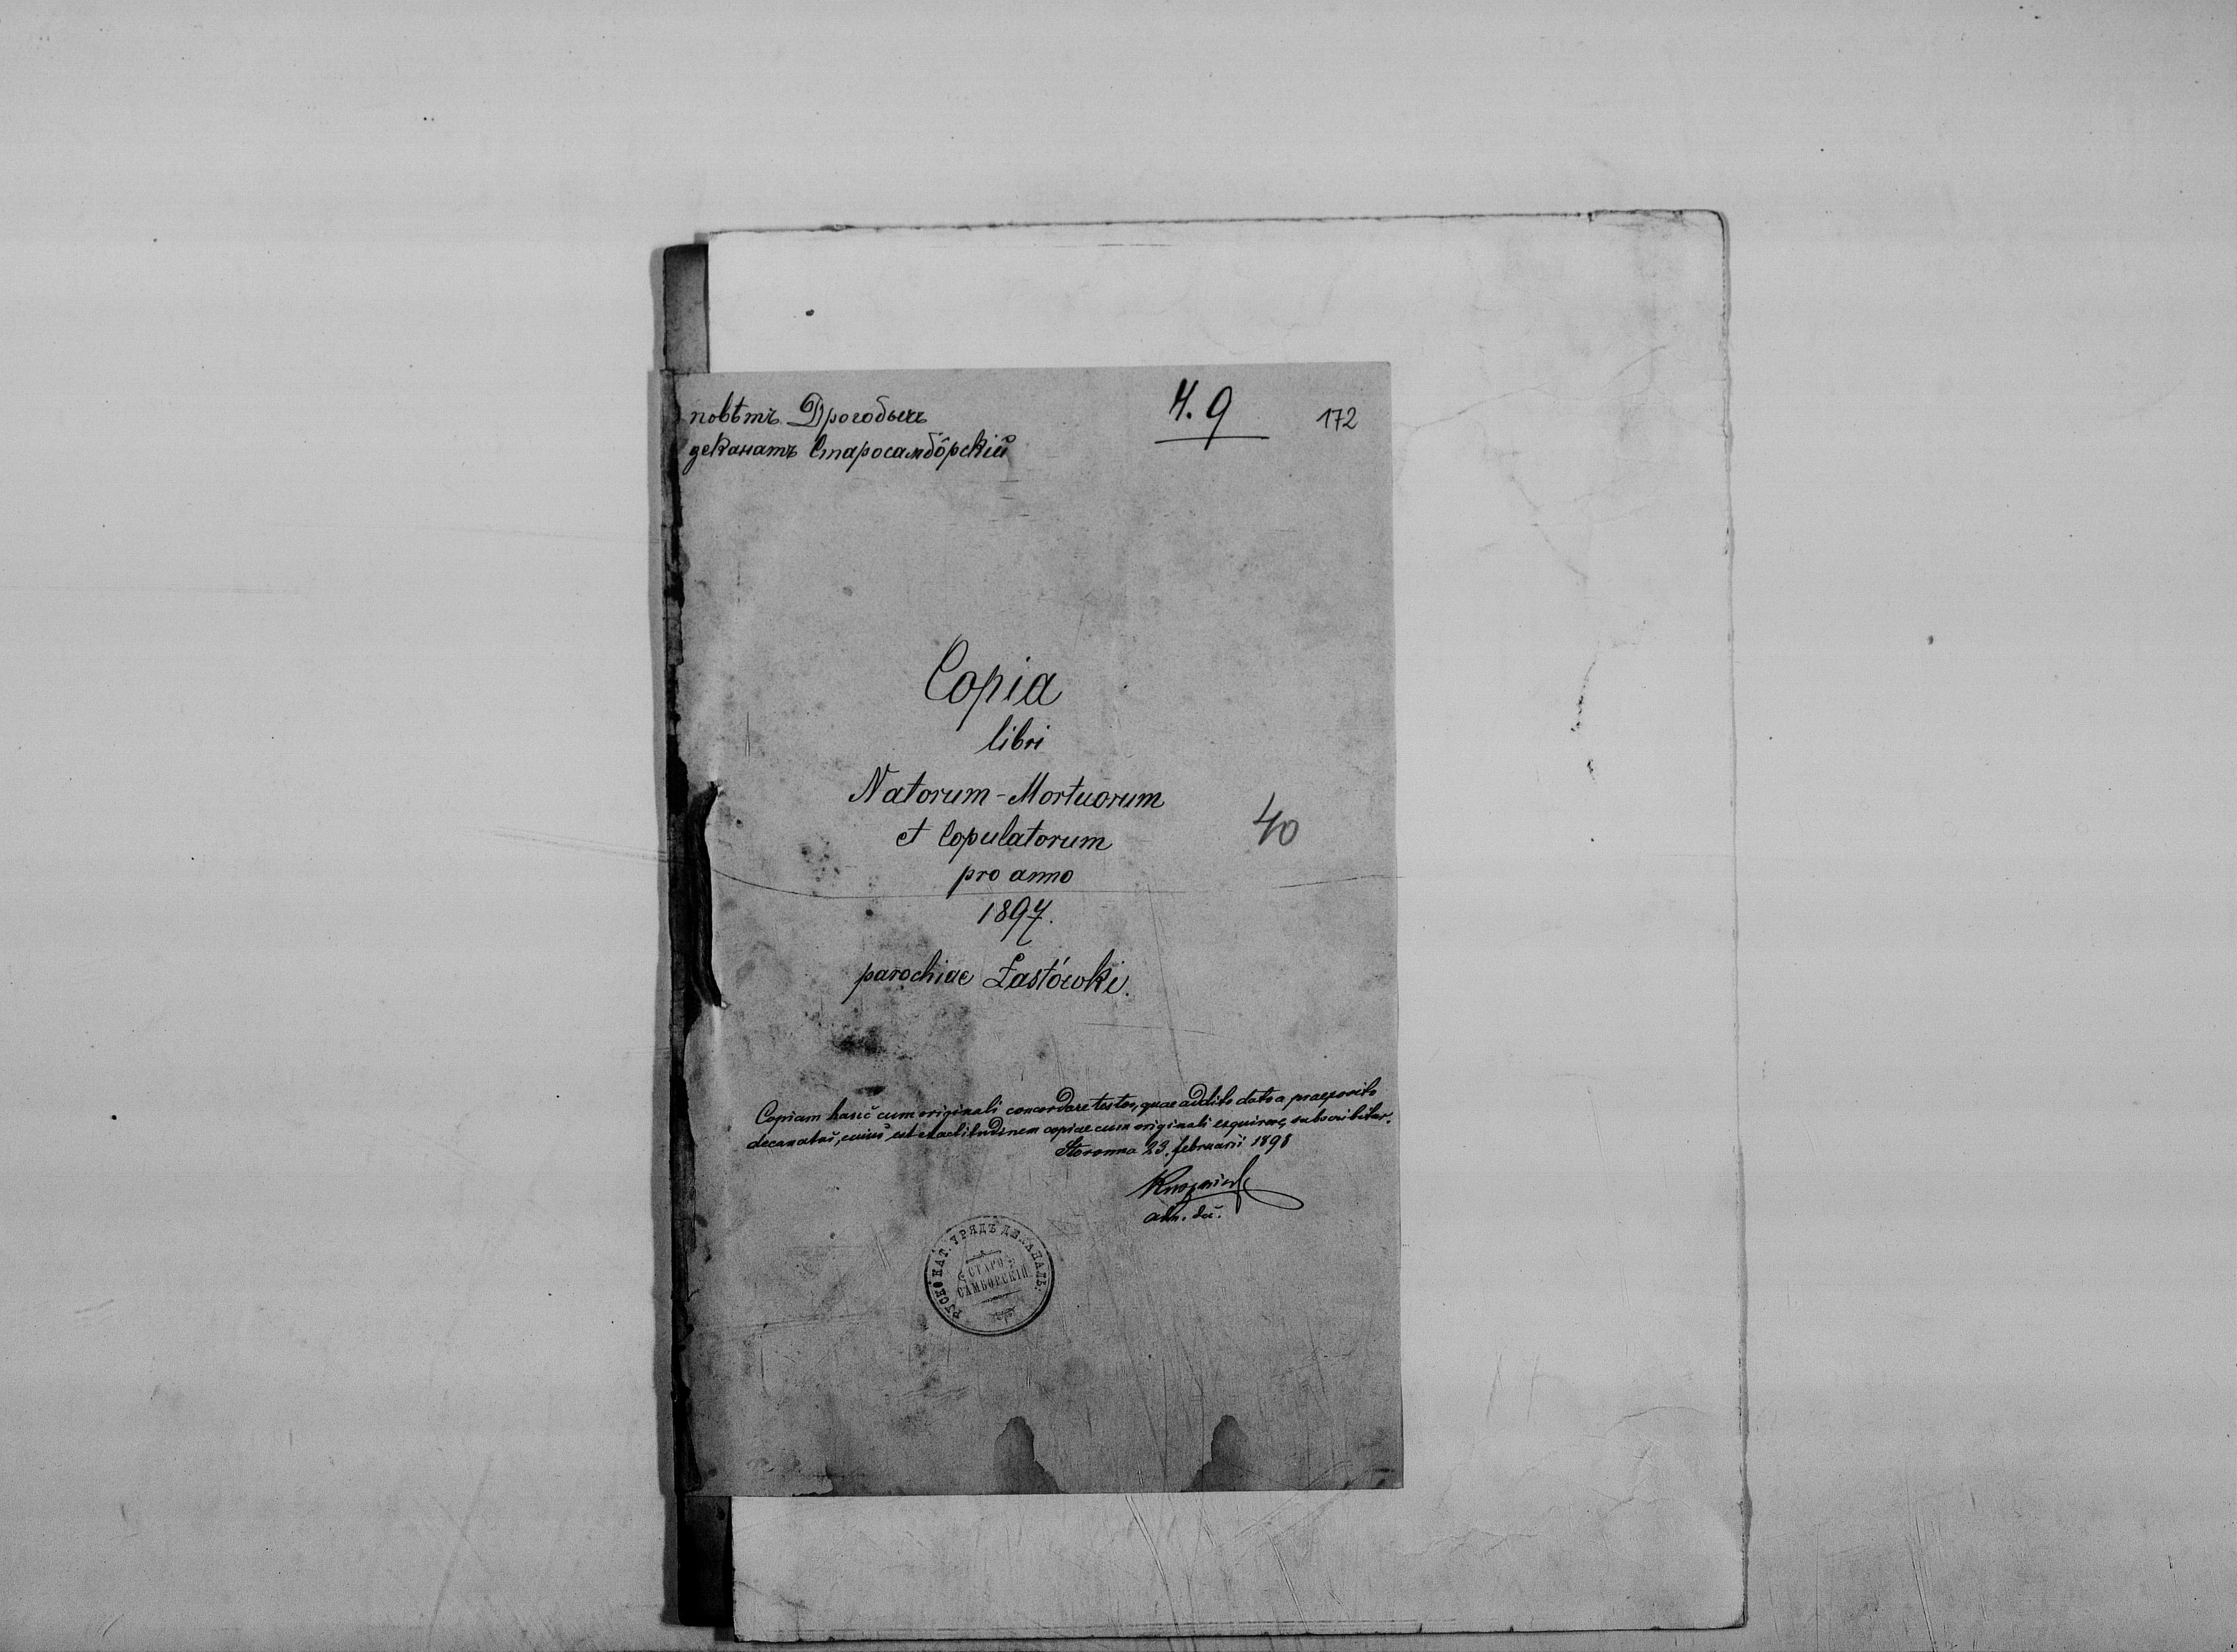 повѣтъ Дрогобычь
Ч. 9
172
деканатъ Старосамбôрскій
Copia
libri
Natorum - Mortuorum
et Copulatorum
40
pro anno
1897.
parochiae Łastówki.
Copiam hancč cum originali concordare testor, quae addito dato a praeposito
decanatuš, cuiuš est exactitudinem copiae cum originali exquirere, subscribitur.
Storonna 23. februarii 1898
adm. dec.
РУСКО КАТ. УРЯДЪ ДЕКАНАЛЬ.
СТАРО
САМБОРСКІЙ